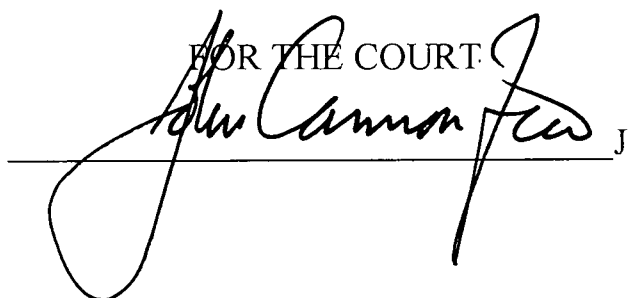 FOR THE COURT
John Cannon Few J